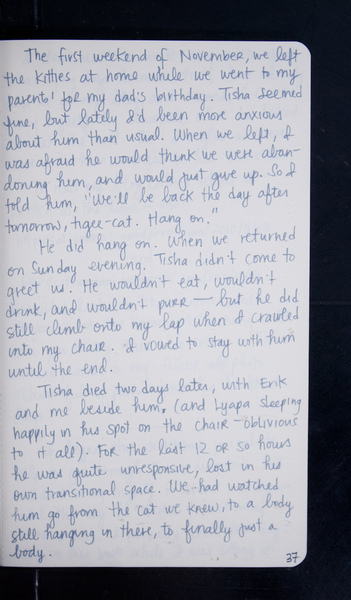 The first weekend of November, we left
the kitties at home while we went to my
parents' for my dad's birthday. Tisha seemed
fine, but lately I'd been more anxious
about him than usual. When we left, I
was afraid he would think we were aban-
doning him, and would just give up. So I
told him, "We'll be back the day after
tomorrow, tiger-cat. Hang on."
He did hang on. When we returned
on Sunday evening, Tisha didn't come to
greet us. He wouldn't eat, wouldn't
drink, and wouldn't purr — but he did
still climb onto my lap when I crawled
into my chair. I vowed to stay with him
until the end.
Tisha died two days later, with Erik
and me beside him, (and Lyapa sleeping
happily in his spot on the chair - oblivious
to it all). For the last 12 or so hours
he was quite unresponsive, lost in his
own transitional space. We had watched
him go from the cat we knew, to a body
still hanging in there, to finally just a
body.
37